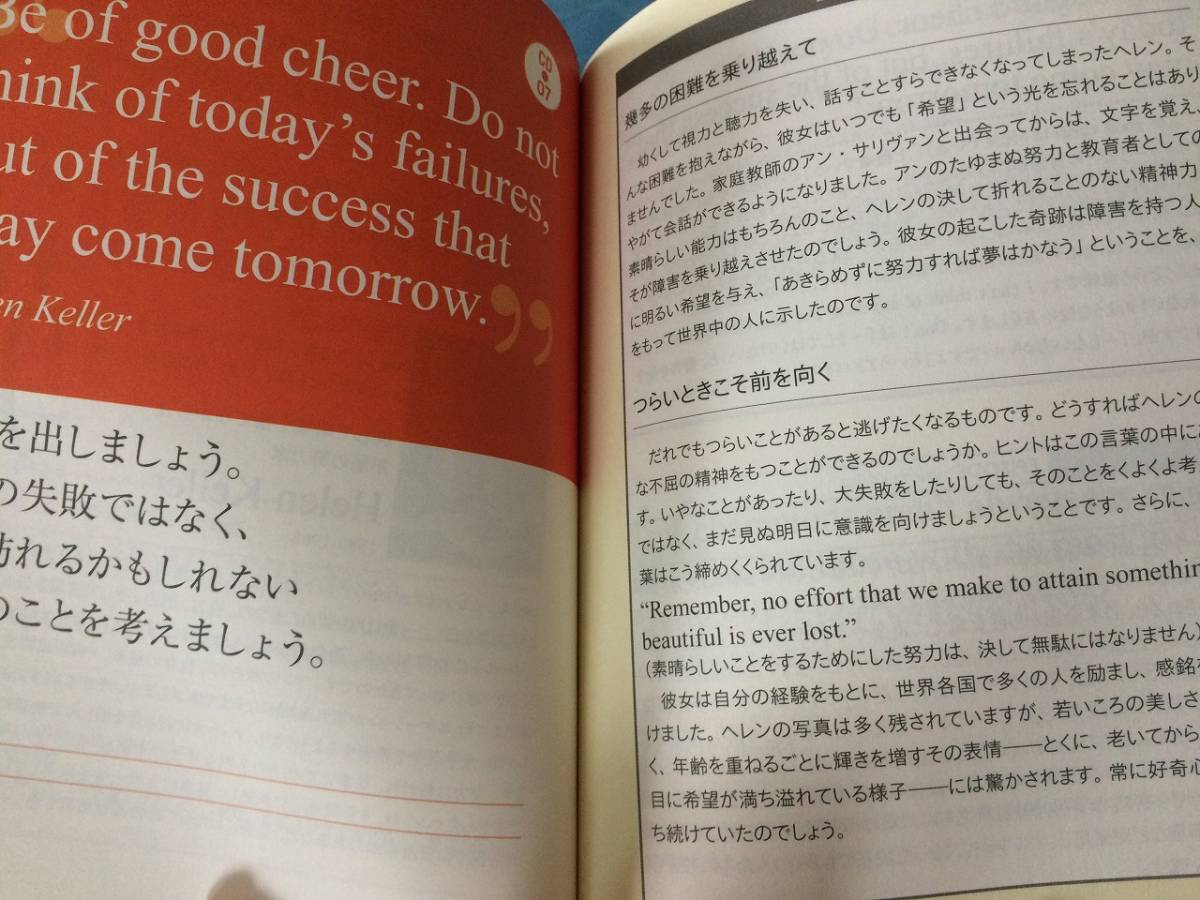 Be of good cheer. Do not
think of today's failures,
but of the success that
may come tomorrow.”
Helen Keller
CD
07
を出しましょう。
の失敗ではなく、
訪れるかもしれない
のことを考えましょう。
幾多の困難を乗り越えて
幼くして視力と聴力を失い、話すことすらできなくなってしまったヘレン。そ
んな困難を抱えながら、彼女はいつでも「希望」という光を忘れることはあり
ませんでした。家庭教師のアン・サリヴァンと出会ってからは、文字を覚え、
やがて会話ができるようになりました。アンのたゆまぬ努力と教育者としての
素晴らしい能力はもちろんのこと、ヘレンの決して折れることのない精神力
そが障害を乗り越えさせたのでしょう。彼女の起こした奇跡は障害を持つ人
に明るい希望を与え、「あきらめずに努力すれば夢はかなう」ということを、
をもって世界中の人に示したのです。
つらいときこそ前を向く
だれでもつらいことがあると逃げたくなるものです。どうすればヘレンの
な不屈の精神をもつことができるのでしょうか。ヒントはこの言葉の中に
す。いやなことがあったり、大失敗をしたりしても、そのことをくよくよ考
ではなく、まだ見ぬ明日に意識を向けましょうということです。さらに、
葉はこう締めくくられています。
“Remember, no effort that we make to attain somethin
beautiful is ever lost.”
(素晴らしいことをするためにした努力は、決して無駄にはなりません)
彼女は自分の経験をもとに、世界各国で多くの人を励まし、感銘を
けました。ヘレンの写真は多く残されていますが、若いころの美しさ
く、年齢を重ねるごとに輝きを増すその表情――とくに、老いてから
目に希望が満ち溢れている様子――には驚かされます。常に好奇心
ち続けていたのでしょう。